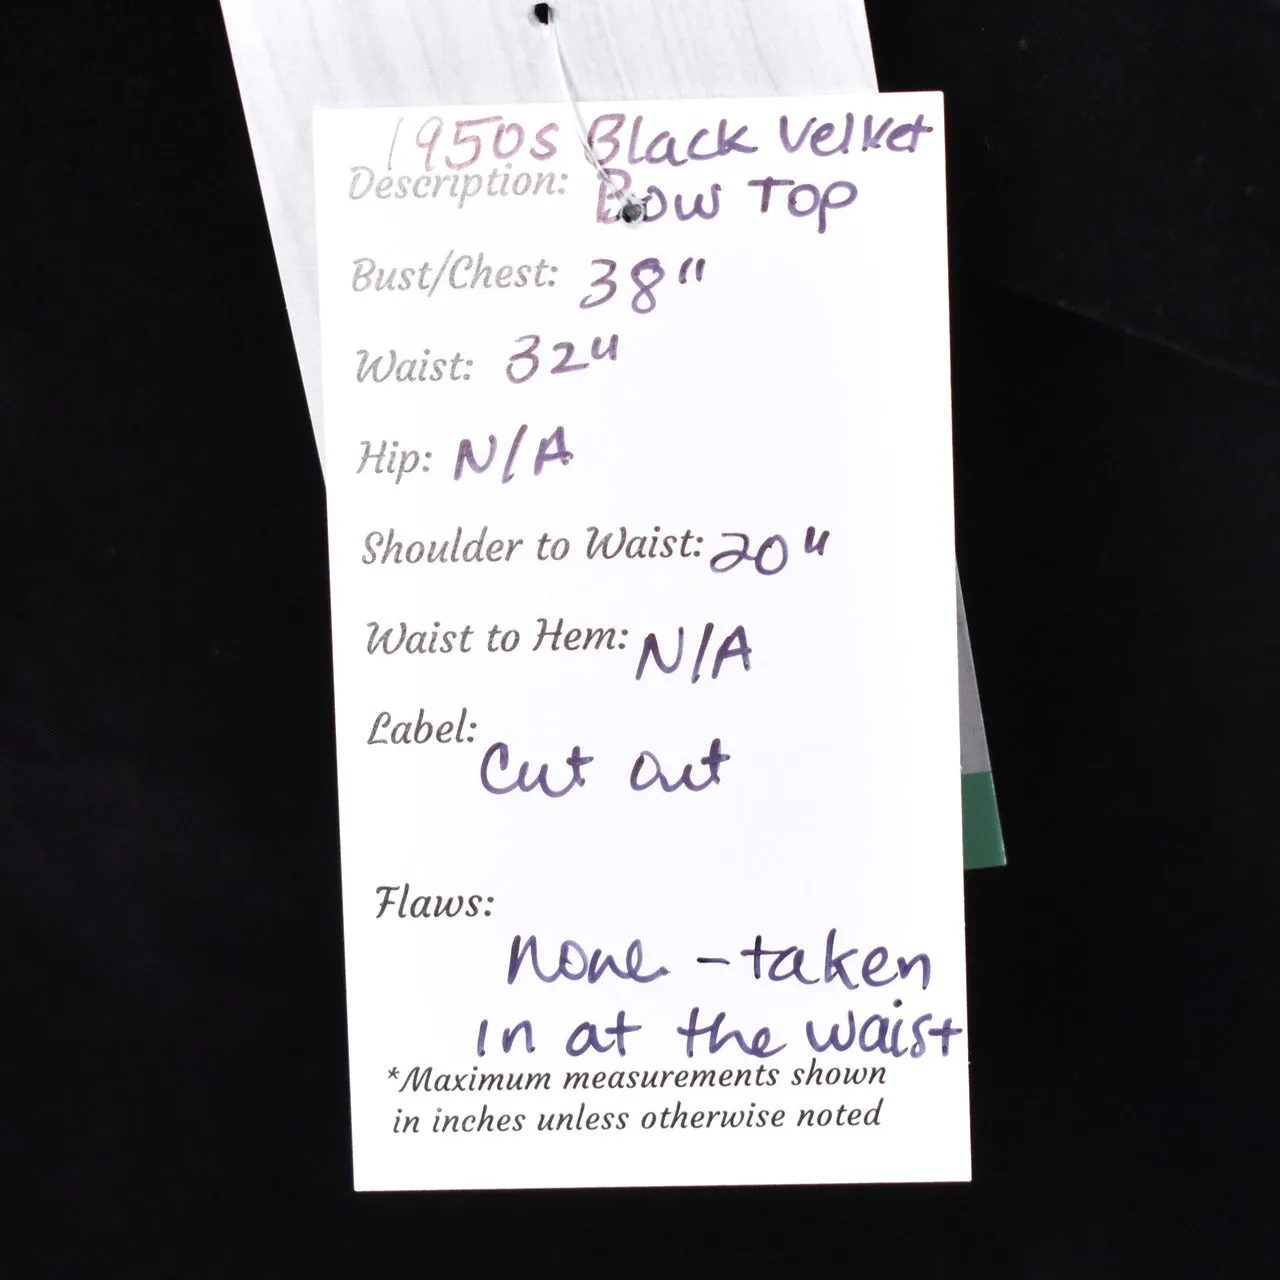 1950s Black Velvet
Description: Bow Top
Bust/Chest: 38"
Waist: 32"
Hip: N/A
Shoulder to Waist: 20"
Waist to Hem: N/A
Label:
Cut out
Flaws:
none - taken
in at the waist
*Maximum measurements shown
in inches unless otherwise noted